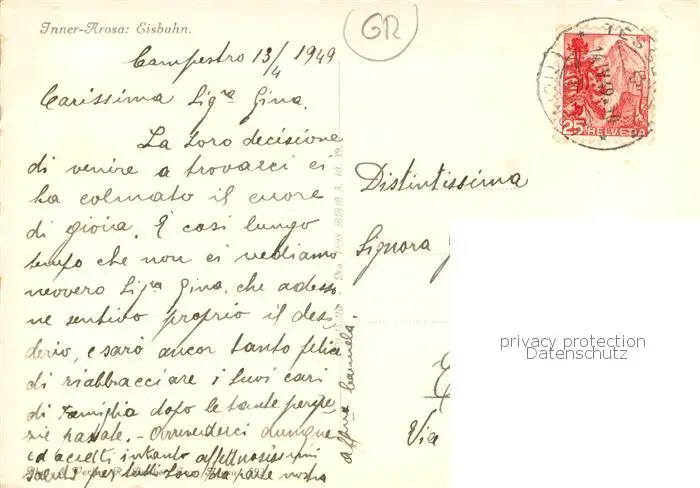 Inner-Arosa: Eisbahn.
GR
Campestro 13/4 1949
Carissima Sigra Gina.
La loro decisione
di venire a trovarci ci
ha colmato il cuore
di gioia. È così lungo
tempo che non ci vediamo
nevvero Sigra Gina, che adesso
ne sentivo proprio il desi
derio, e sarò ancor tanto felice
di riabbracciare i suoi cari
di famiglia dopo le tante
passate. - Arrivederci dunque
ed accetti intanto affettuosissimi
saluti per tutti loro da parte nostra
Distintissima
Signora
Via
25 HELVETIA
privacy protection
Datenschutz